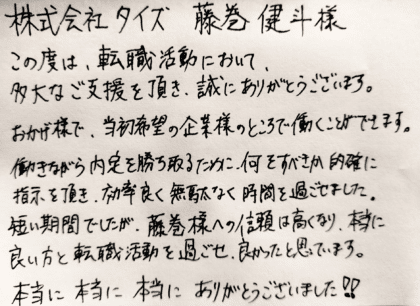 株式会社タイズ 藤巻 健斗様
この度は、転職活動において、
多大なご支援を頂き、誠にありがとうございます。
おかげ様で、当初希望の企業様のところで働くことができます。
働きながら内定を勝ち取るために、何をすべきか的確に
指示を頂き、効率良く無駄なく時間を過ごせました。
短い期間でしたが、藤巻様への信頼は高くなり、本当に
良い方と転職活動を過ごせ、良かったと思ています。
本当に 本当に 本当に ありがとうございました!!